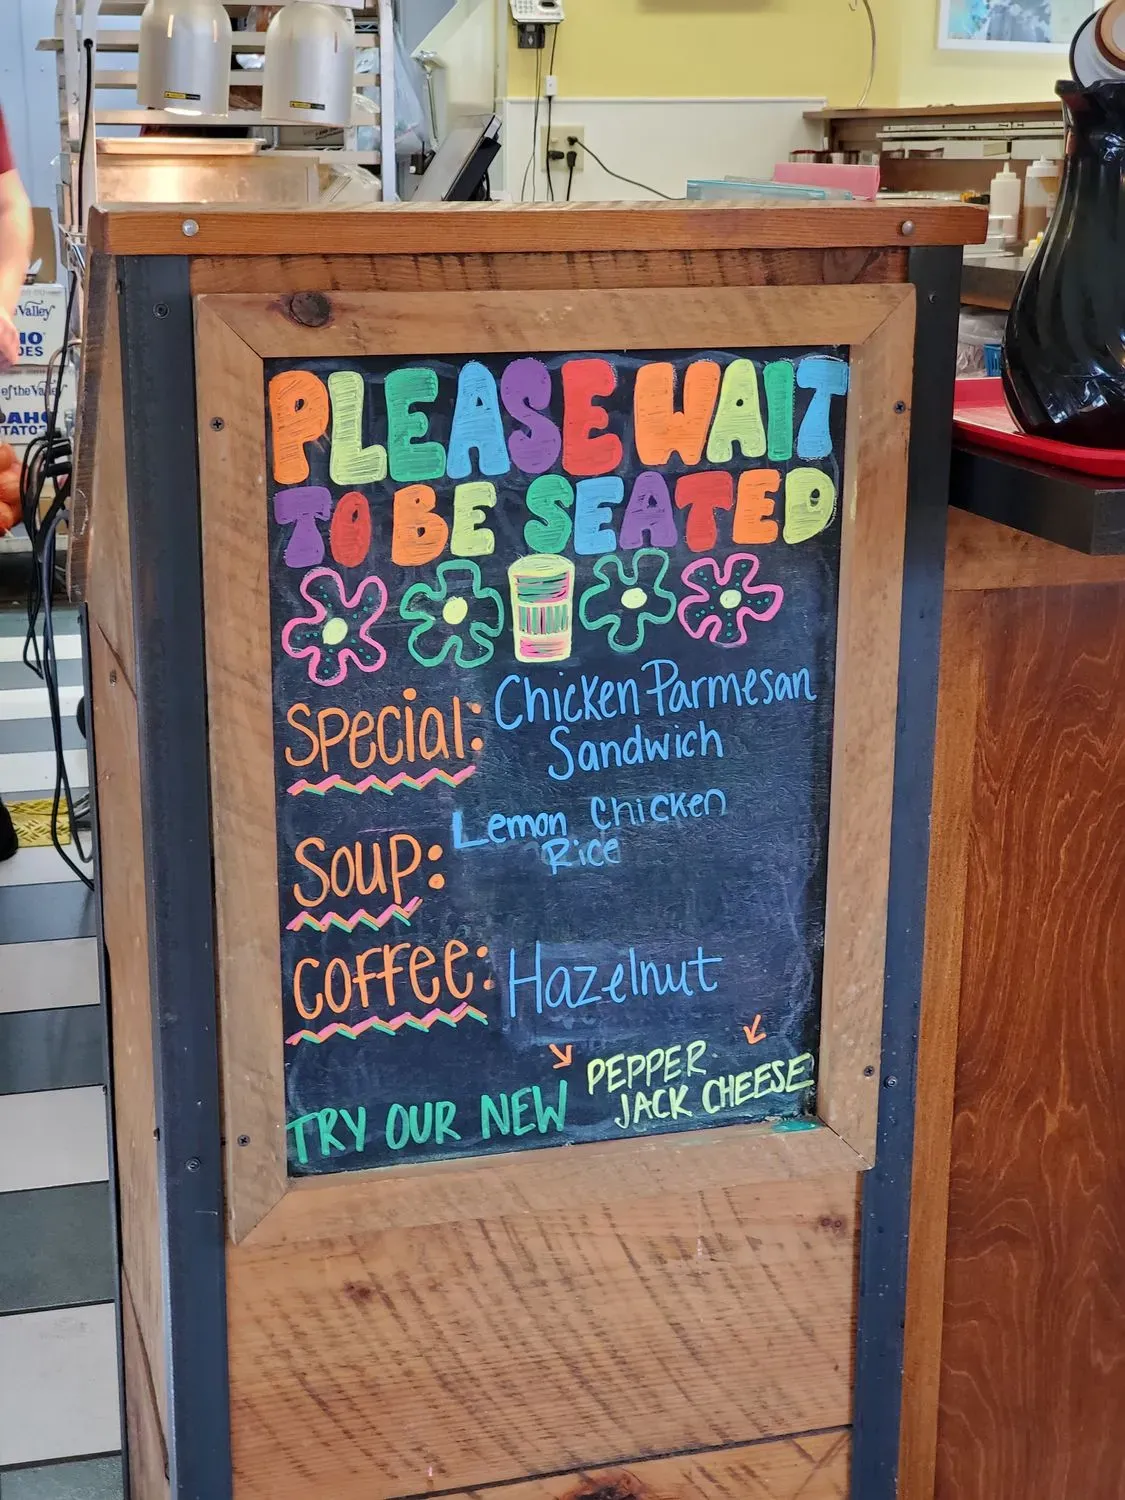 PLEASE WAIT
TO BE SEATED
Special: Chicken Parmesan
Sandwich
Soup: Lemon Chicken
Rice
Coffee: Hazelnut
TRY OUR NEW PEPPER
JACK CHEESE
of the Valley